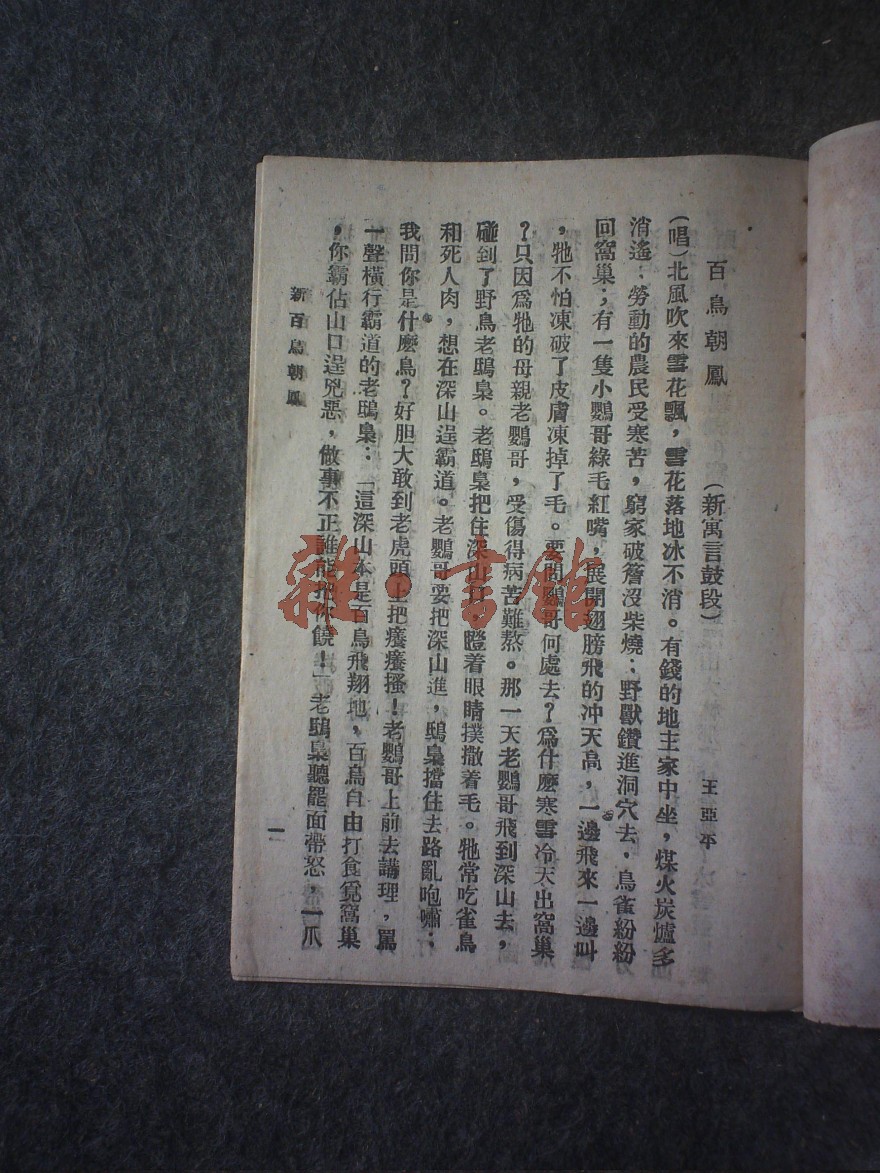 百鳥朝鳳　（新寓言鼓段）　王亞平
（唱）北風吹來雪花飄，雪花落地冰不消。有錢的地主家中坐，煤火炭爐多
消遙；勞動的農民受寒苦，窮家破簷沒柴燒；野獸鑽進洞穴去，鳥雀紛紛
回窩巢；有一隻小鸚哥綠毛紅嘴，展開翅膀飛的冲天高，一邊飛來一邊叫
，牠不怕凍破了皮膚凍掉了毛。要問鸚哥何處去？爲什麽寒雪冷天出窩巢
？只因爲牠的母親老鸚哥，受傷得病苦難熬。那一天老鸚哥飛到深山去，
碰到了野鳥老鴟梟。老鴟梟把住深山口，瞪着眼睛撲撒着毛。牠常吃雀鳥
和死人肉，想在深山逞霸道。老鸚哥要把深山進，鴟梟擋住去路亂咆嘯：
我問你是什麽鳥？好胆大敢到老虎頭上把癢癢搔！老鸚哥上前去講理，駡
一聲橫行霸道的老鴟梟：「這深山本是百鳥飛翔地，百鳥自由打食覓窩巢
，你霸佔山口逞兇惡，做事不正誰能把你饒！」老鴟梟聽罷面帶怒，一爪
新百鳥朝鳳
一
雜·書館